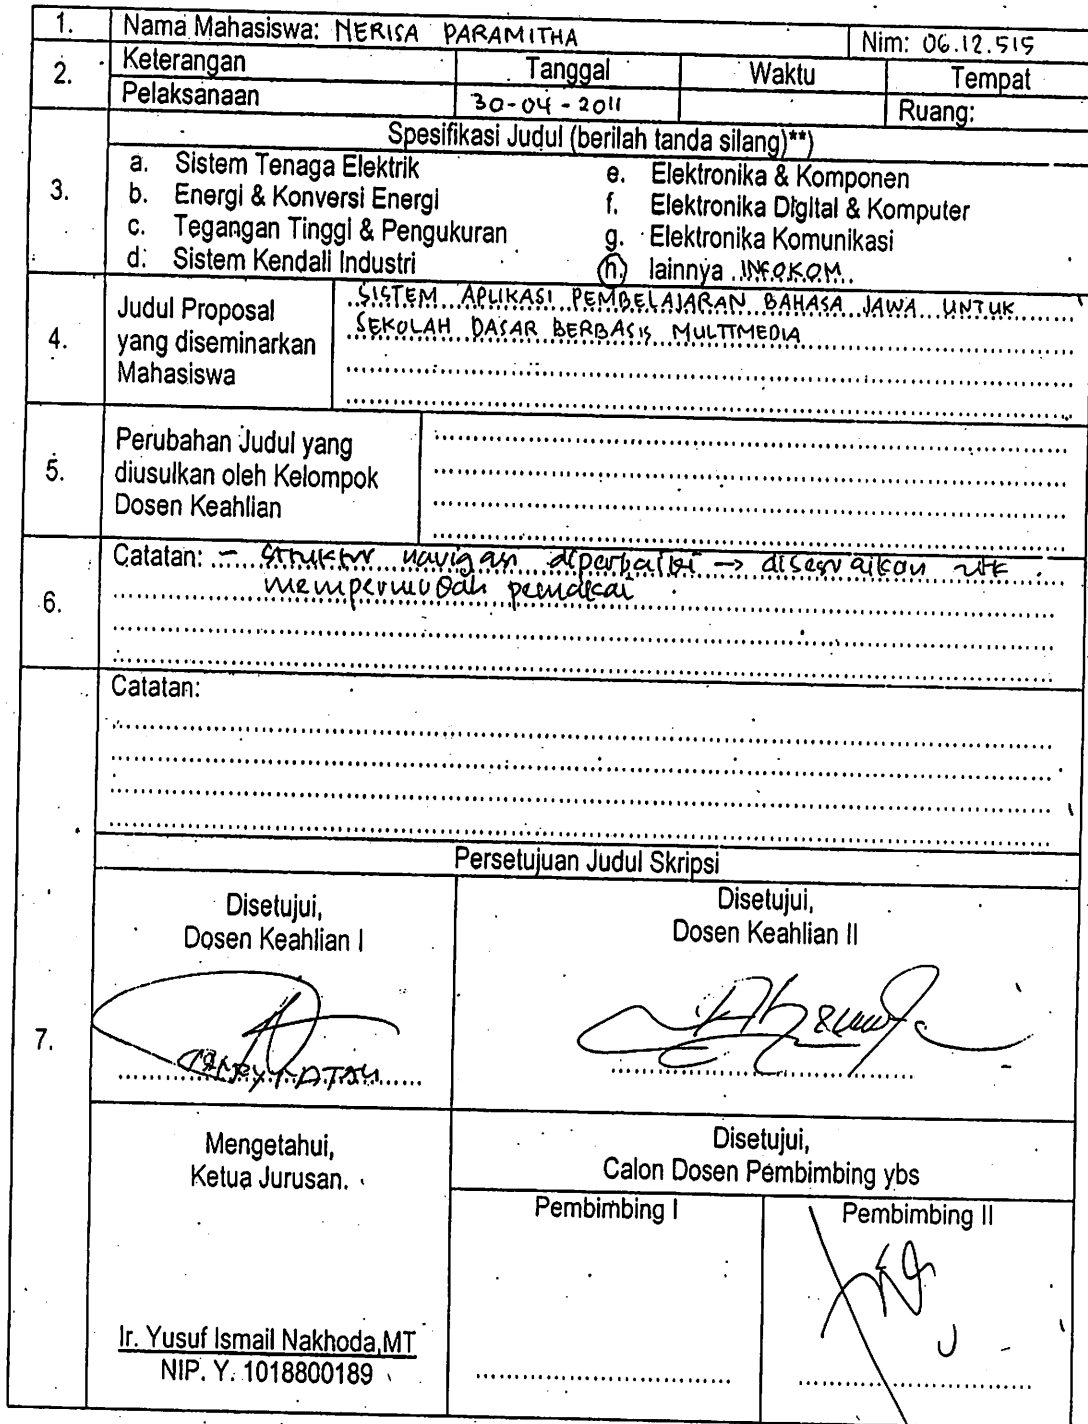 1. Nama Mahasiswa: NERISA PARAMITHA Nim: 06.12.515
2. Keterangan Pelaksanaan Tanggal Waktu Tempat
30-04-2011 Ruang:
3. Spesifikasi Judul (berilah tanda silang)**)
a. Sistem Tenaga Elektrik
b. Energi & Konversi Energi
c. Tegangan Tinggi & Pengukuran
d. Sistem Kendali Industri
e. Elektronika & Komponen
f. Elektronika Digital & Komputer
g. Elektronika Komunikasi
h. lainnya INFOKOM
4. Judul Proposal
yang diseminarkan
Mahasiswa
SISTEM APLIKASI PEMBELAJARAN BAHASA JAWA UNTUK
SEKOLAH DASAR BERBASIS MULTIMEDIA
5. Perubahan Judul yang
diusulkan oleh Kelompok
Dosen Keahlian
6. Catatan: - struktur navigasi diperbaiki → disesuaikan utk
mempermudah pemakai
Catatan:
7. Persetujuan Judul Skripsi
Disetujui,
Dosen Keahlian I
Disetujui,
Dosen Keahlian II
Mengetahui,
Ketua Jurusan.
Ir. Yusuf Ismail Nakhoda,MT
NIP. Y. 1018800189
Disetujui,
Calon Dosen Pembimbing ybs
Pembimbing I
Pembimbing II